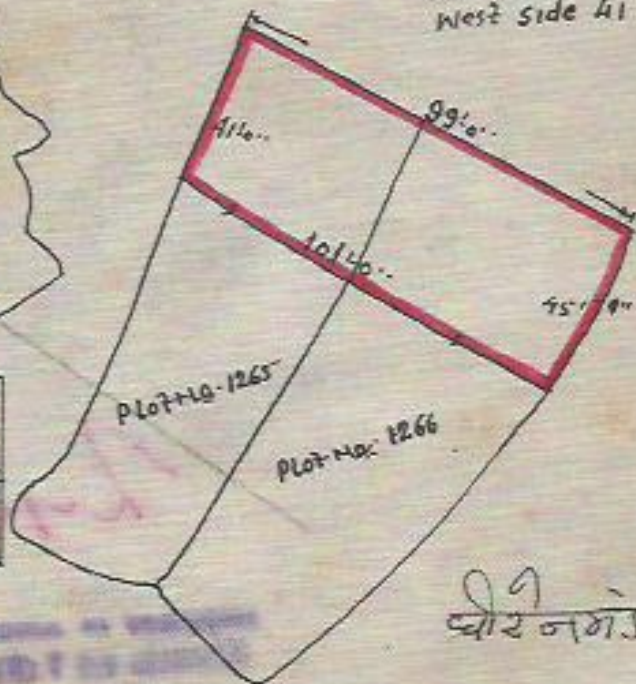 West side 41
99'.0"
41'.0"
101'.0"
45' 9"
PLOT NO. 1265
PLOT NO. 1266